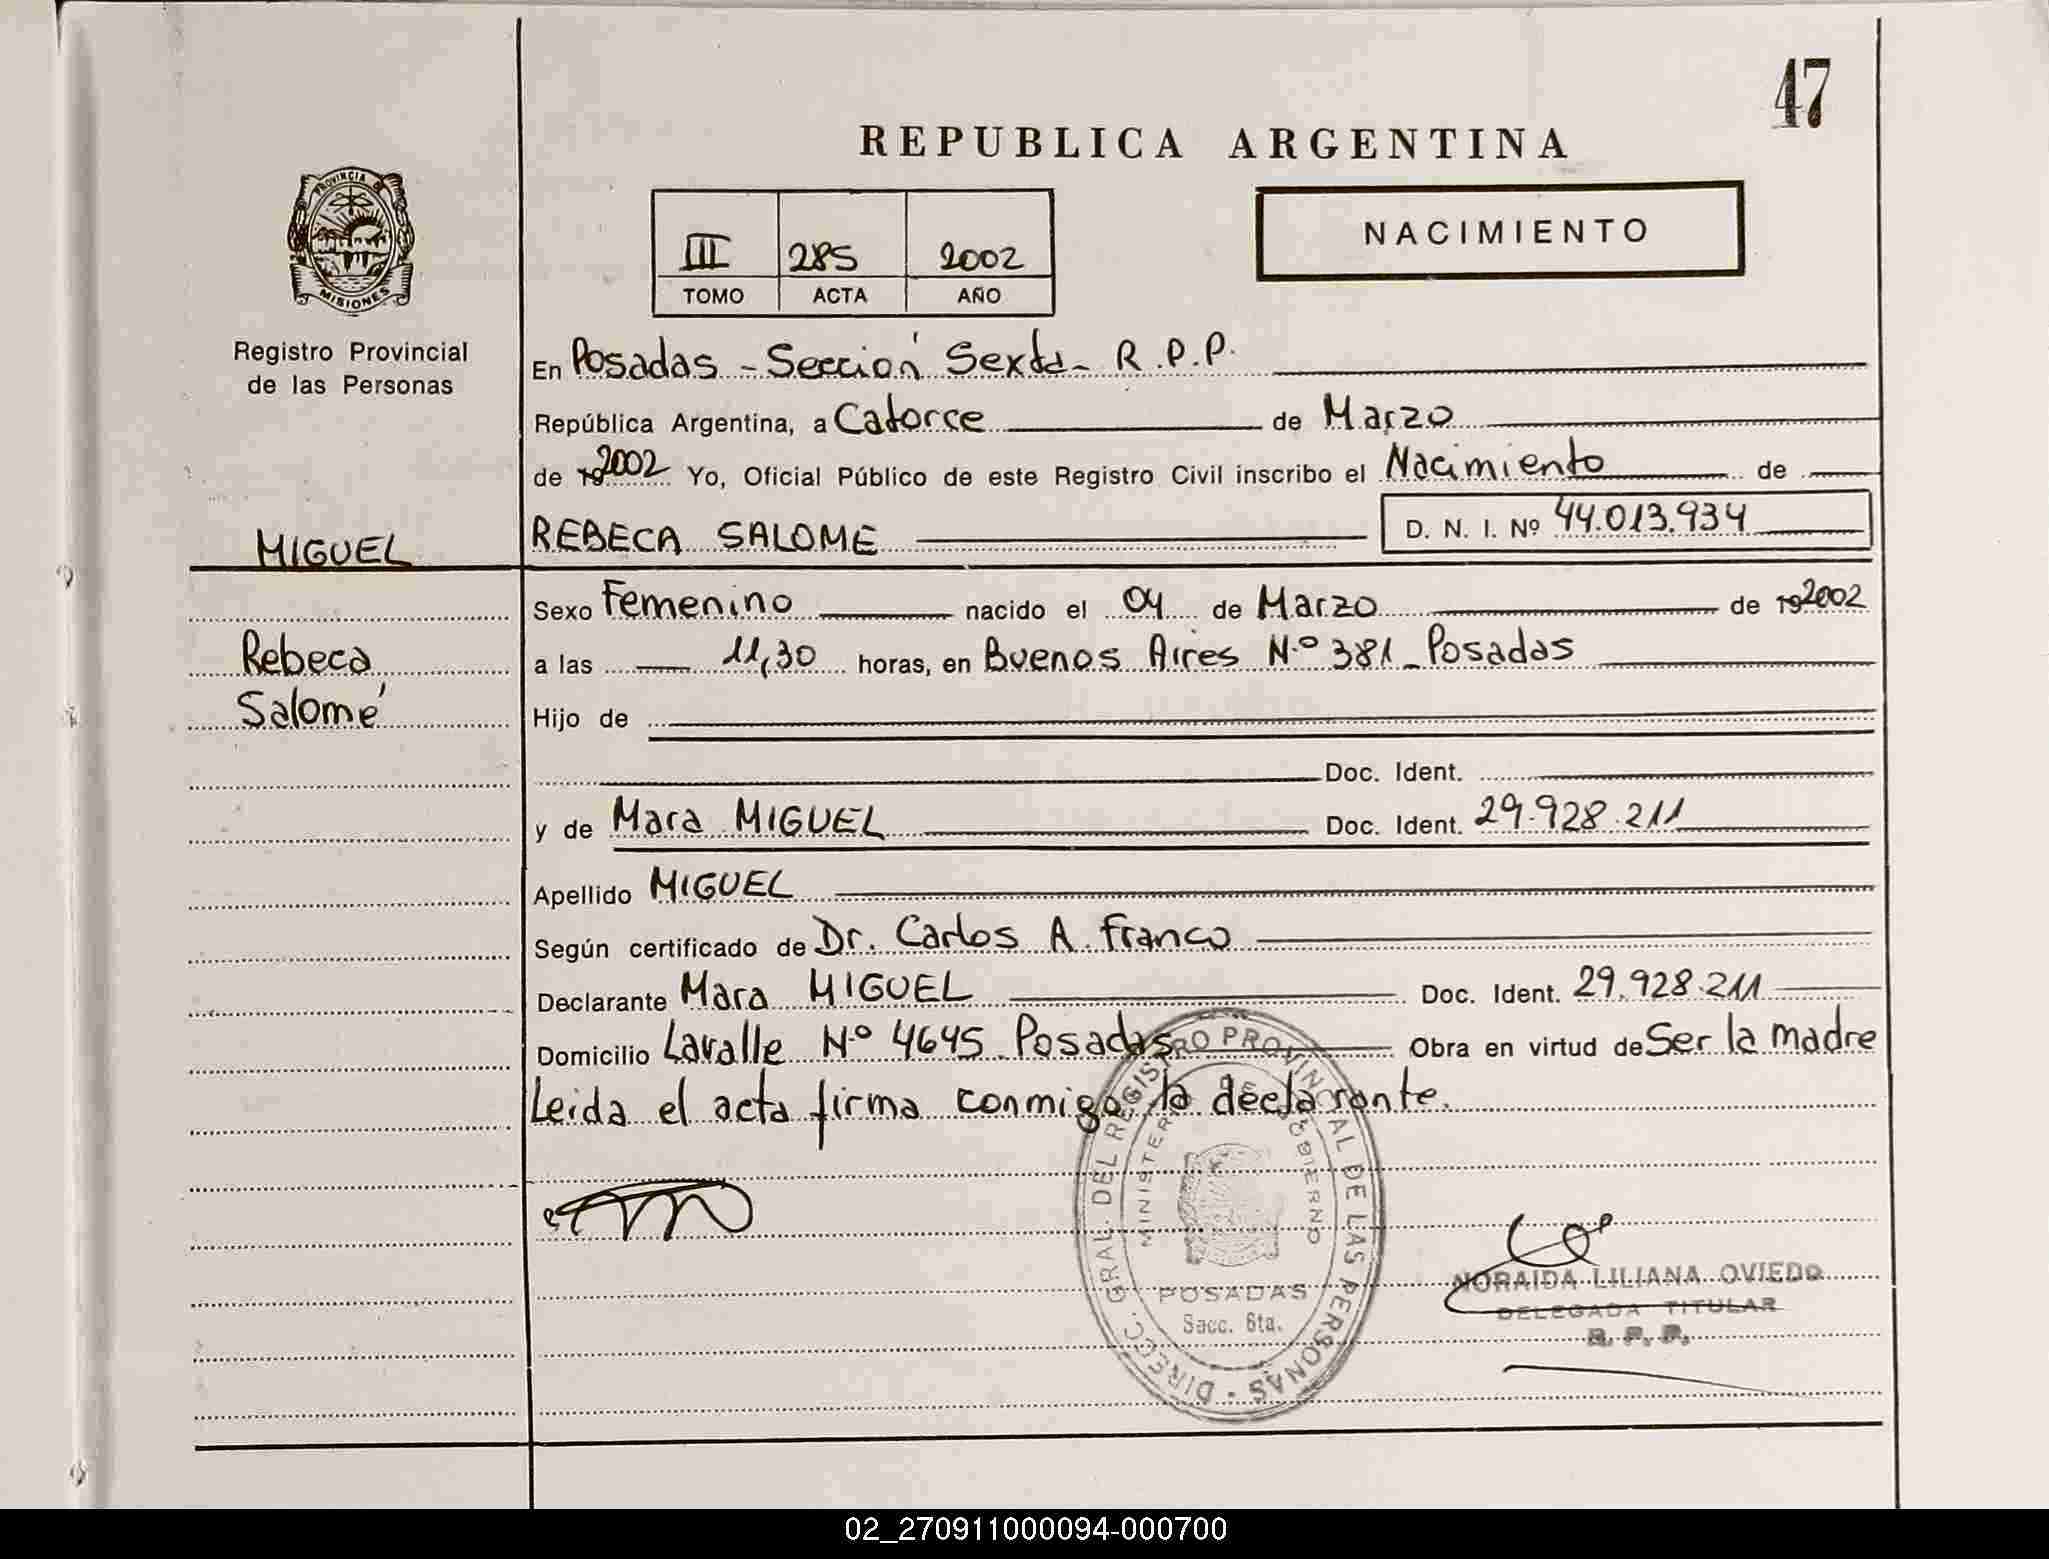 47
REPUBLICA ARGENTINA
PROVINCIA DE
MISIONES
Registro Provincial
de las Personas
III 285 2002
TOMO ACTA AÑO
NACIMIENTO
En Posadas - Sección Sexta - R.P.P.
República Argentina, a Catorce de Marzo
de 192002 Yo, Oficial Público de este Registro Civil inscribo el Nacimiento de
MIGUEL
REBECA SALOME D. N. I. Nº 44.013.934
Sexo Femenino nacido el 04 de Marzo de 192002
Rebeca
Salomé
a las 11,30 horas, en Buenos Aires N.º 381 - Posadas
Hijo de
Doc. Ident.
y de Mara MIGUEL Doc. Ident. 29.928.211
Apellido MIGUEL
Según certificado de Dr. Carlos A. Franco
Declarante Mara MIGUEL Doc. Ident. 29.928.211
Domicilio Lavalle N.º 4645 Posadas Obra en virtud de Ser la madre
Leida el acta firma conmigo la declarante.
DIRECC. GRAL. DEL REGISTRO PROVINCIAL DE LAS PERSONAS
MINISTERIO DE GOBIERNO
POSADAS
Secc. 6ta.
NORAIDA LILIANA OVIEDO
DELEGADA TITULAR
R. P. P.
02_270911000094-000700